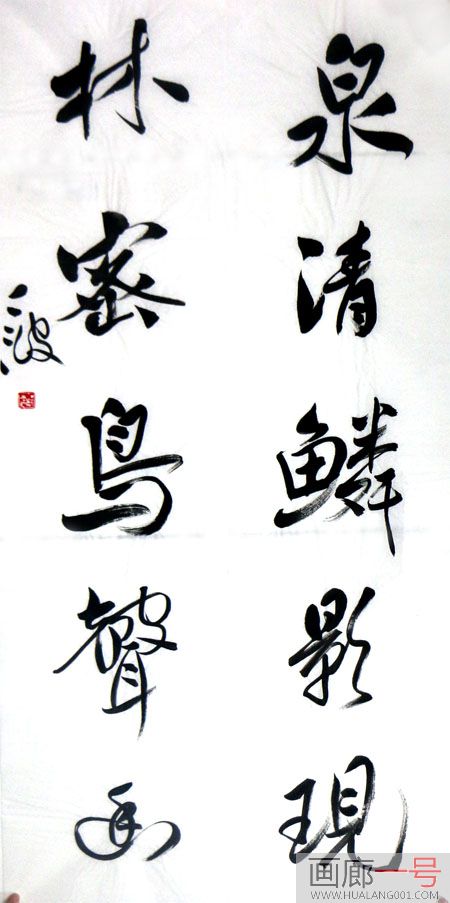 泉清鳞影現
林密鳥聲幽
画廊一号
WWW.HUALANG001.COM